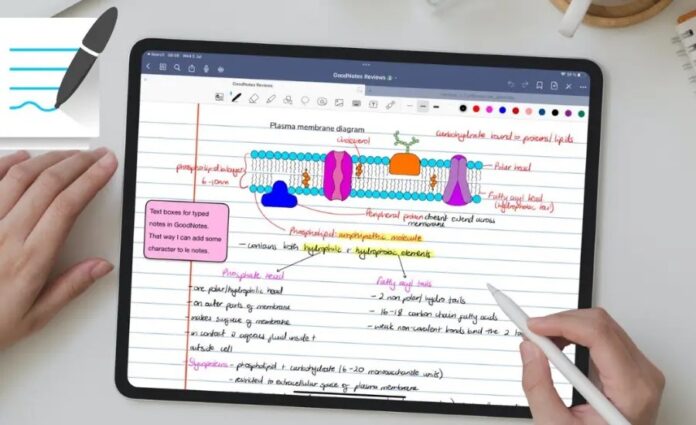 GoodNotes Reviews
GoodNotes Reviews
Plasma membrane diagram
cholesterol
carbohydrate bound to proteins/lipids
phospholipid bilayer
6-10nm
Polar head
Fatty acyl head
(hydrophobic tail)
Peripheral protein doesnt extend across
membrane
Text boxes for typed
notes in GoodNotes.
That way I can add some
character to le notes.
Phospholipid: amphipathic molecule
- contains both hydrophilic + hydrophobic elements
Phosphate head
- one polar/hydrophilic head
- on outer parts of membrane
- makes surface of membrane
- in contact w aqueous fluid inside +
outside cell
Fatty acyl tails
- 2 non polar/hydro tails
- 16-18 carbon chain fatty acids
- weak non-covalent bonds bind the 2
- phospholipid + carbohydrate (6-20 monosaccharide units)
- restricted to extracellular space of plasma membrane